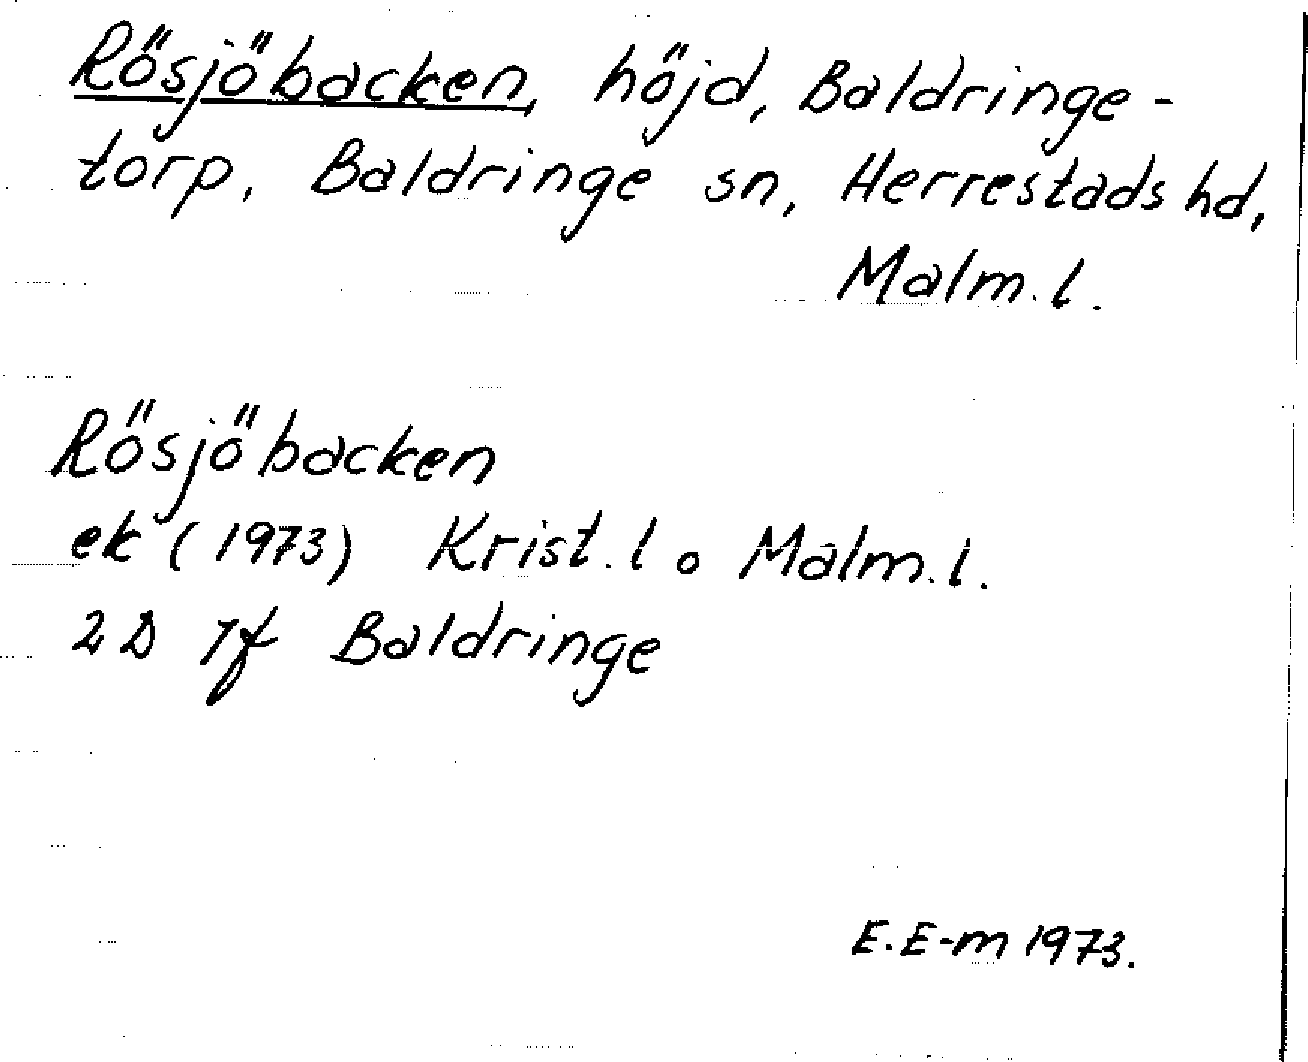 Rösjöbacken, höjd, Baldringe-
torp, Baldringe sn, Herrestads hd,
Malm. l.
Rösjöbacken
ek (1973) Krist. l o Malm. l.
2D 7f Baldringe
E. E-m 1973.